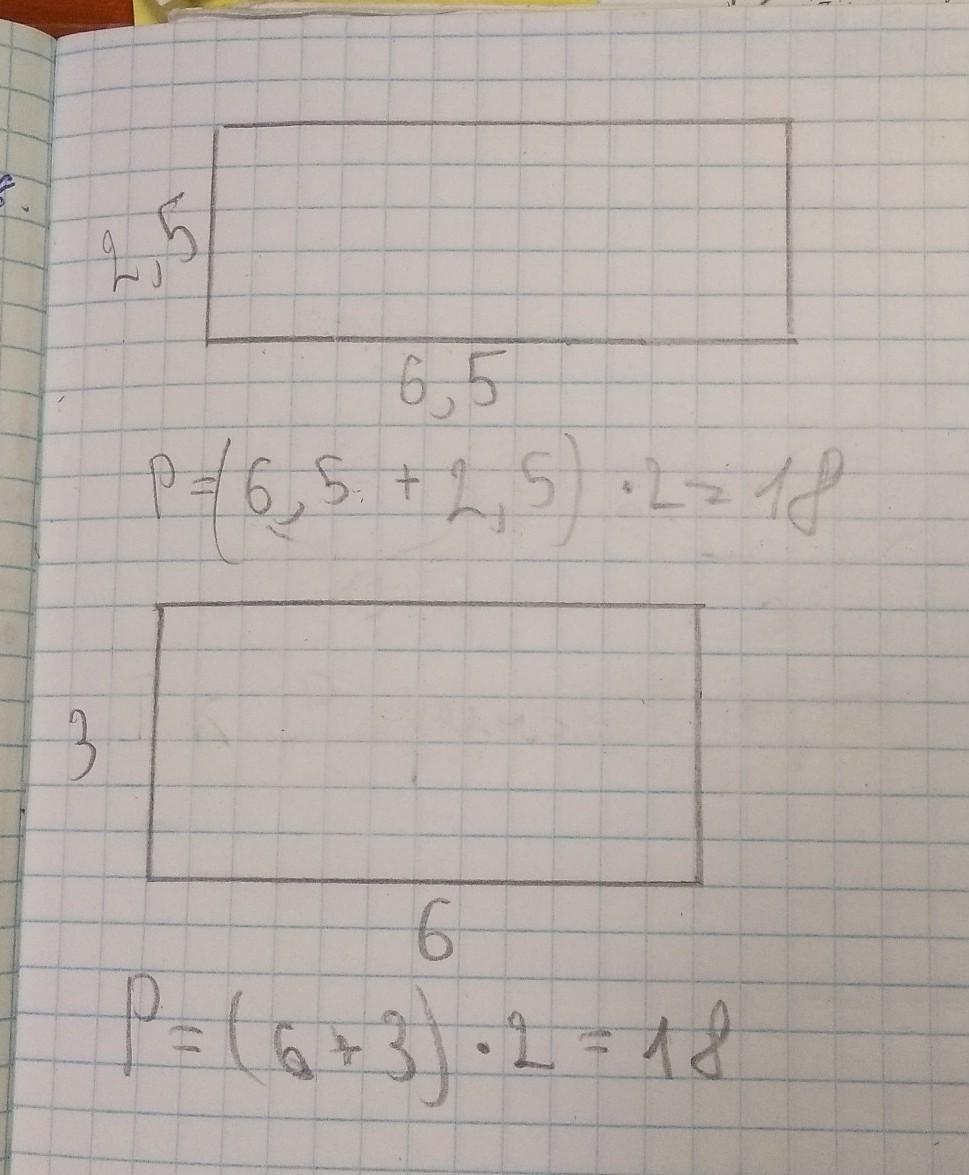 2,5
6,5
P=(6,5 + 2,5) · 2 = 18
3
6
P = (6 + 3) · 2 = 18